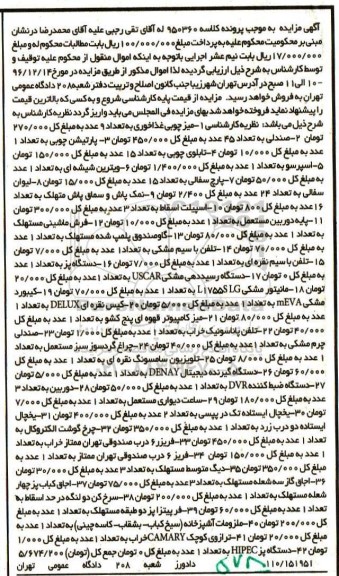 آگهی مزایده به موجب پرونده کلاسه ۹۵۰۳۶۰ له آقای تقی رجبی علیه آقای محمدرضا درنشان
مبنی بر محکومیت محکوم علیه به پرداخت مبلغ ۱۰۰/۰۰۰/۰۰۰ ریال بابت مطالبات محکوم له و مبلغ
۱۷/۰۰۰/۰۰۰ ریال بابت نیم عشر اجرایی باتوجه به اینکه اموال منقول از محکوم علیه توقیف و
توسط کارشناس به شرح ذیل ارزیابی گردیده لذا اموال مذکور از طریق مزایده در مورخ ۹۶/۱۲/۱۴
۱۰ الی ۱۱ صبح در آدرس تهران شهرزیبا جنب کانون اصلاح و تربیت دفتر شعبه ۲۰۸ دادگاه عمومی
تهران به فروش خواهد رسید. مزایده از قیمت پایه کارشناسی شروع و به کسی که بالاترین قیمت
را پیشنهاد نماید فروخته خواهد شد بهای مزایده فی المجلس می باید واریز گردد نظریه کارشناس به
شرح ذیل می باشد: نظریه کارشناسی ۱-میز چوبی غذاخوری به تعداد ۹ عدد به مبلغ کل ۲۷۰/۰۰۰
تومان ۲-صندلی به تعداد ۴۵ عدد به مبلغ کل ۴۵۰/۰۰۰ تومان ۳-پارتیشن چوبی به تعداد ۱
عدد به مبلغ کل ۱۰/۰۰۰ تومان ۴-تابلوی چوبی به تعداد ۱۵ عدد به مبلغ کل ۱۵۰/۰۰۰ تومان
۵-اسپرسو به تعداد ۱ عدد به مبلغ کل ۱/۴۰۰/۰۰۰ تومان ۶-ویترین شیشه ای به تعداد ۱ عدد
به مبلغ کل ۵۰/۰۰۰ تومان ۷-پارچ سفالی به تعداد ۱۵ عدد به مبلغ کل ۱۵/۰۰۰ تومان ۸-لیوان
سفالی به تعداد ۲۴ عدد به مبلغ کل ۲/۴۰۰ تومان ۹-نمک پاش و سماق پاش مستهلک به تعداد
۱۶ عدد به مبلغ کل ۸/۰۰۰ تومان ۱۰-اسپیلت اسقاط به تعداد ۳ عدد به مبلغ کل ۳۰۰/۰۰۰ تومان
۱۱-پایه دوربین مستعمل به تعداد ۱ عدد به مبلغ کل ۱۰/۰۰۰ تومان ۱۲-فرش ماشینی مستهلک
به تعداد ۱ عدد به مبلغ کل ۸۰/۰۰۰ تومان ۱۳-گاوصندوق پلمپ شده مستهلک به تعداد ۱ عدد
به مبلغ کل ۷۰/۰۰۰ تومان ۱۴-تلفن با سیم مشکی به تعداد ۱ عدد به مبلغ کل ۷/۰۰۰ تومان
۱۵-تلفن با سیم نقره ای به تعداد ۱ عدد به مبلغ کل ۷/۰۰۰ تومان ۱۶-دستگاه پز به تعداد ۱ عدد
به مبلغ کل ۰ تومان ۱۷-دستگاه رسیددهی مشکی USCAR به تعداد ۱ عدد به مبلغ کل ۲۰/۰۰۰
تومان ۱۸-مانیتور مشکی L1755S LG به تعداد ۱ عدد به مبلغ کل ۷۰/۰۰۰ تومان ۱۹-کیبورد
مشکی mEVA به تعداد ۱ عدد به مبلغ کل ۵/۰۰۰ تومان ۲۰-کیس نقره ای DELUX به تعداد ۱
عدد به مبلغ کل ۸۰/۰۰۰ تومان ۲۱-میز کامپیوتر قهوه ای پنج کشو به تعداد ۱ عدد به مبلغ کل
۴۰/۰۰۰ تومان ۲۲-تلفن پاناسونیک خراب به تعداد ۱ عدد به مبلغ کل ۱/۰۰۰ تومان ۲۳-صندلی
چرم مشکی به تعداد ۱ عدد به مبلغ کل ۴۰/۰۰۰ تومان ۲۴-چراغ گردسوز سبز مستعمل به تعداد
۱ عدد به مبلغ کل ۸/۰۰۰ تومان ۲۵-تلویزیون سامسونگ نقره ای به تعداد ۱ عدد به مبلغ کل
۶۰/۰۰۰ تومان ۲۶-دستگاه گیرنده دیجیتال DENAY به تعداد ۱ عدد به مبلغ کل ۵/۰۰۰ تومان
۲۷-دستگاه ضبط کننده DVR به تعداد ۱ عدد به مبلغ کل ۵۰/۰۰۰ تومان ۲۸-دوربین به تعداد ۳
عدد به مبلغ کل ۱۸۰/۰۰۰ تومان ۲۹-ساعت دیواری مستعمل به تعداد ۱ عدد به مبلغ کل ۷/۰۰۰
تومان ۳۰-یخچال ایستاده تک در پپسی به تعداد ۲ عدد به مبلغ کل ۴۰۰/۰۰۰ تومان ۳۱-یخچال
ایستاده دو درب زرد به تعداد ۱ عدد به مبلغ کل ۳۵۰/۰۰۰ تومان ۳۲-چرخ گوشت الکتروکال به
تعداد ۱ عدد به مبلغ کل ۴۵۰/۰۰۰ تومان ۳۳-فریزر ۶ درب صندوقی تهران ممتاز خراب به تعداد
۱ عدد به مبلغ کل ۱۵۰/۰۰۰ تومان ۳۴-فریزر ۶ درب صندوقی تهران ممتاز به تعداد ۱ عدد به
مبلغ کل ۳۵۰/۰۰۰ تومان ۳۵-دیگ متوسط مستهلک به تعداد ۳ عدد به مبلغ کل ۳۰/۰۰۰ تومان
۳۶-اجاق گاز سه شعله مستهلک به تعداد ۳ عدد به مبلغ کل ۷۵/۰۰۰ تومان ۳۷-اجاق کباب پز چهار
شعله مستهلک به تعداد ۱ عدد به مبلغ کل ۲۰۰/۰۰۰ تومان ۳۸-سرخ کن دو لنگه در حد اسقاط به
تعداد ۱ عدد به مبلغ کل ۶۰/۰۰۰ تومان ۳۹-فر پیتزا پز دو طبقه مستهلک به تعداد ۱ عدد به مبلغ
کل ۲۰۰/۰۰۰ تومان ۴۰-ملزومات آشپزخانه (سیخ کباب- بشقاب- کاسه چینی) به تعداد ۱ عدد به
مبلغ کل ۲۰/۰۰۰ تومان ۴۱-ترازوی کوچک CAMARY خراب به تعداد ۱ عدد به مبلغ کل ۱/۰۰۰
تومان ۴۲-دستگاه پز HIPEC به تعداد ۱ عدد به مبلغ کل ۰ تومان جمع کل (تومان) ۵/۶۷۴/۲۰۰
۱۱۰/۱۵۱۹۵۱ دادورز شعبه ۲۰۸ دادگاه عمومی تهران